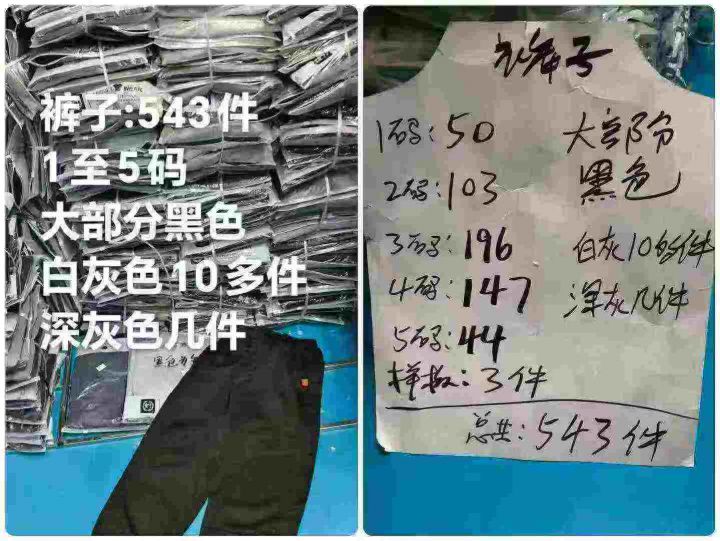 裤子:543件
1至5码
大部分黑色
白灰色10多件
深灰色几件
裤子
1码:50 大部分
2码:103 黑色
3码:196 白灰10多件
4码:147 深灰几件
5码:44
样板:3件
总共:543件